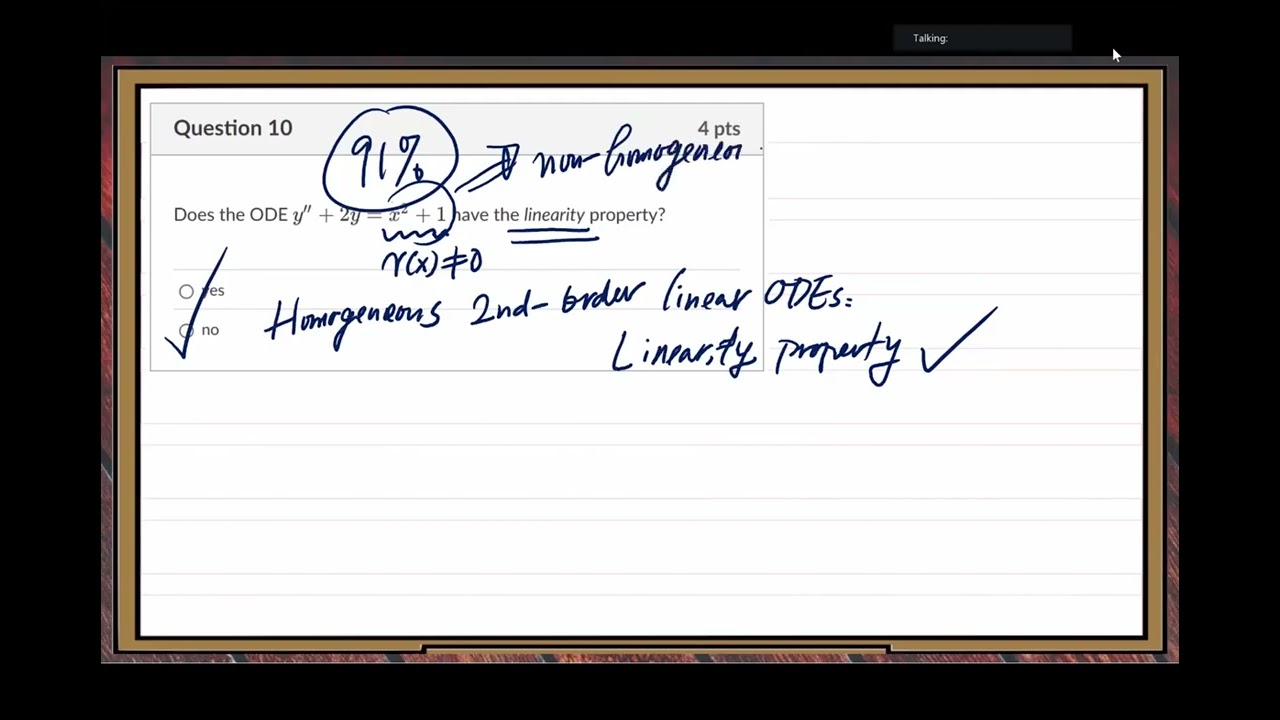 Talking:
Question 10
4 pts
91%
non-homogeneou
Does the ODE y″ + 2y = x² + 1 have the linearity property?
r(x)≠0
yes
Homogeneous 2nd-order linear ODEs:
no
Linearity property ✓